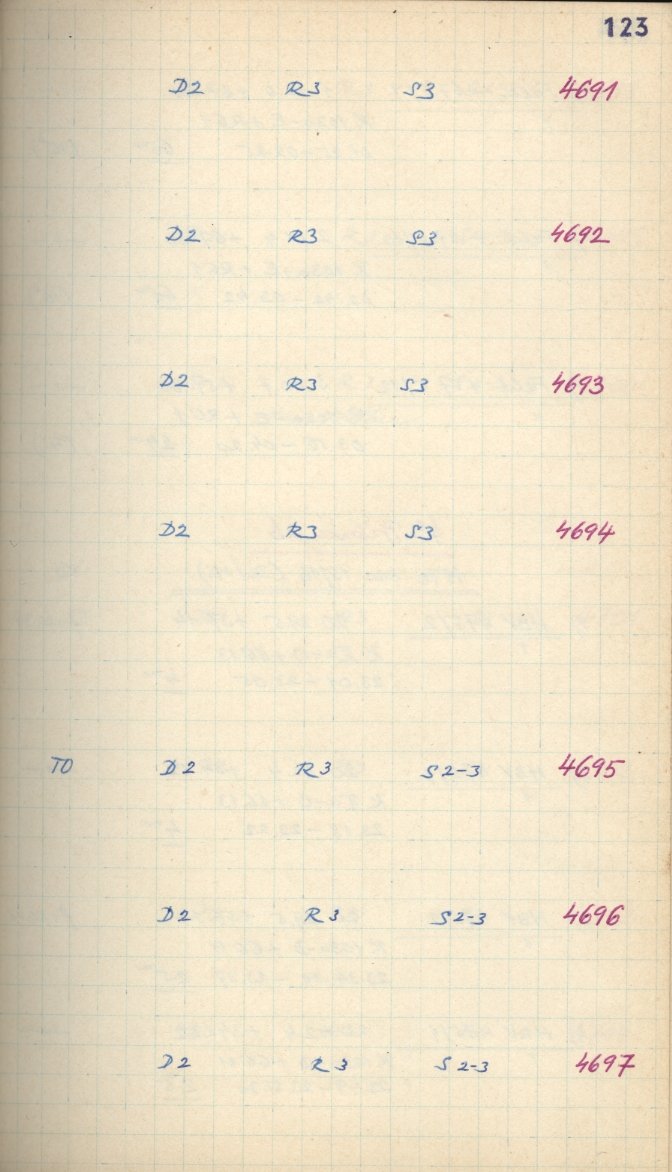 123
D2 R3 S3 4691
D2 R3 S3 4692
D2 R3 S3 4693
D2 R3 S3 4694
TO D2 R3 S2-3 4695
D2 R3 S2-3 4696
D2 R3 S2-3 4697